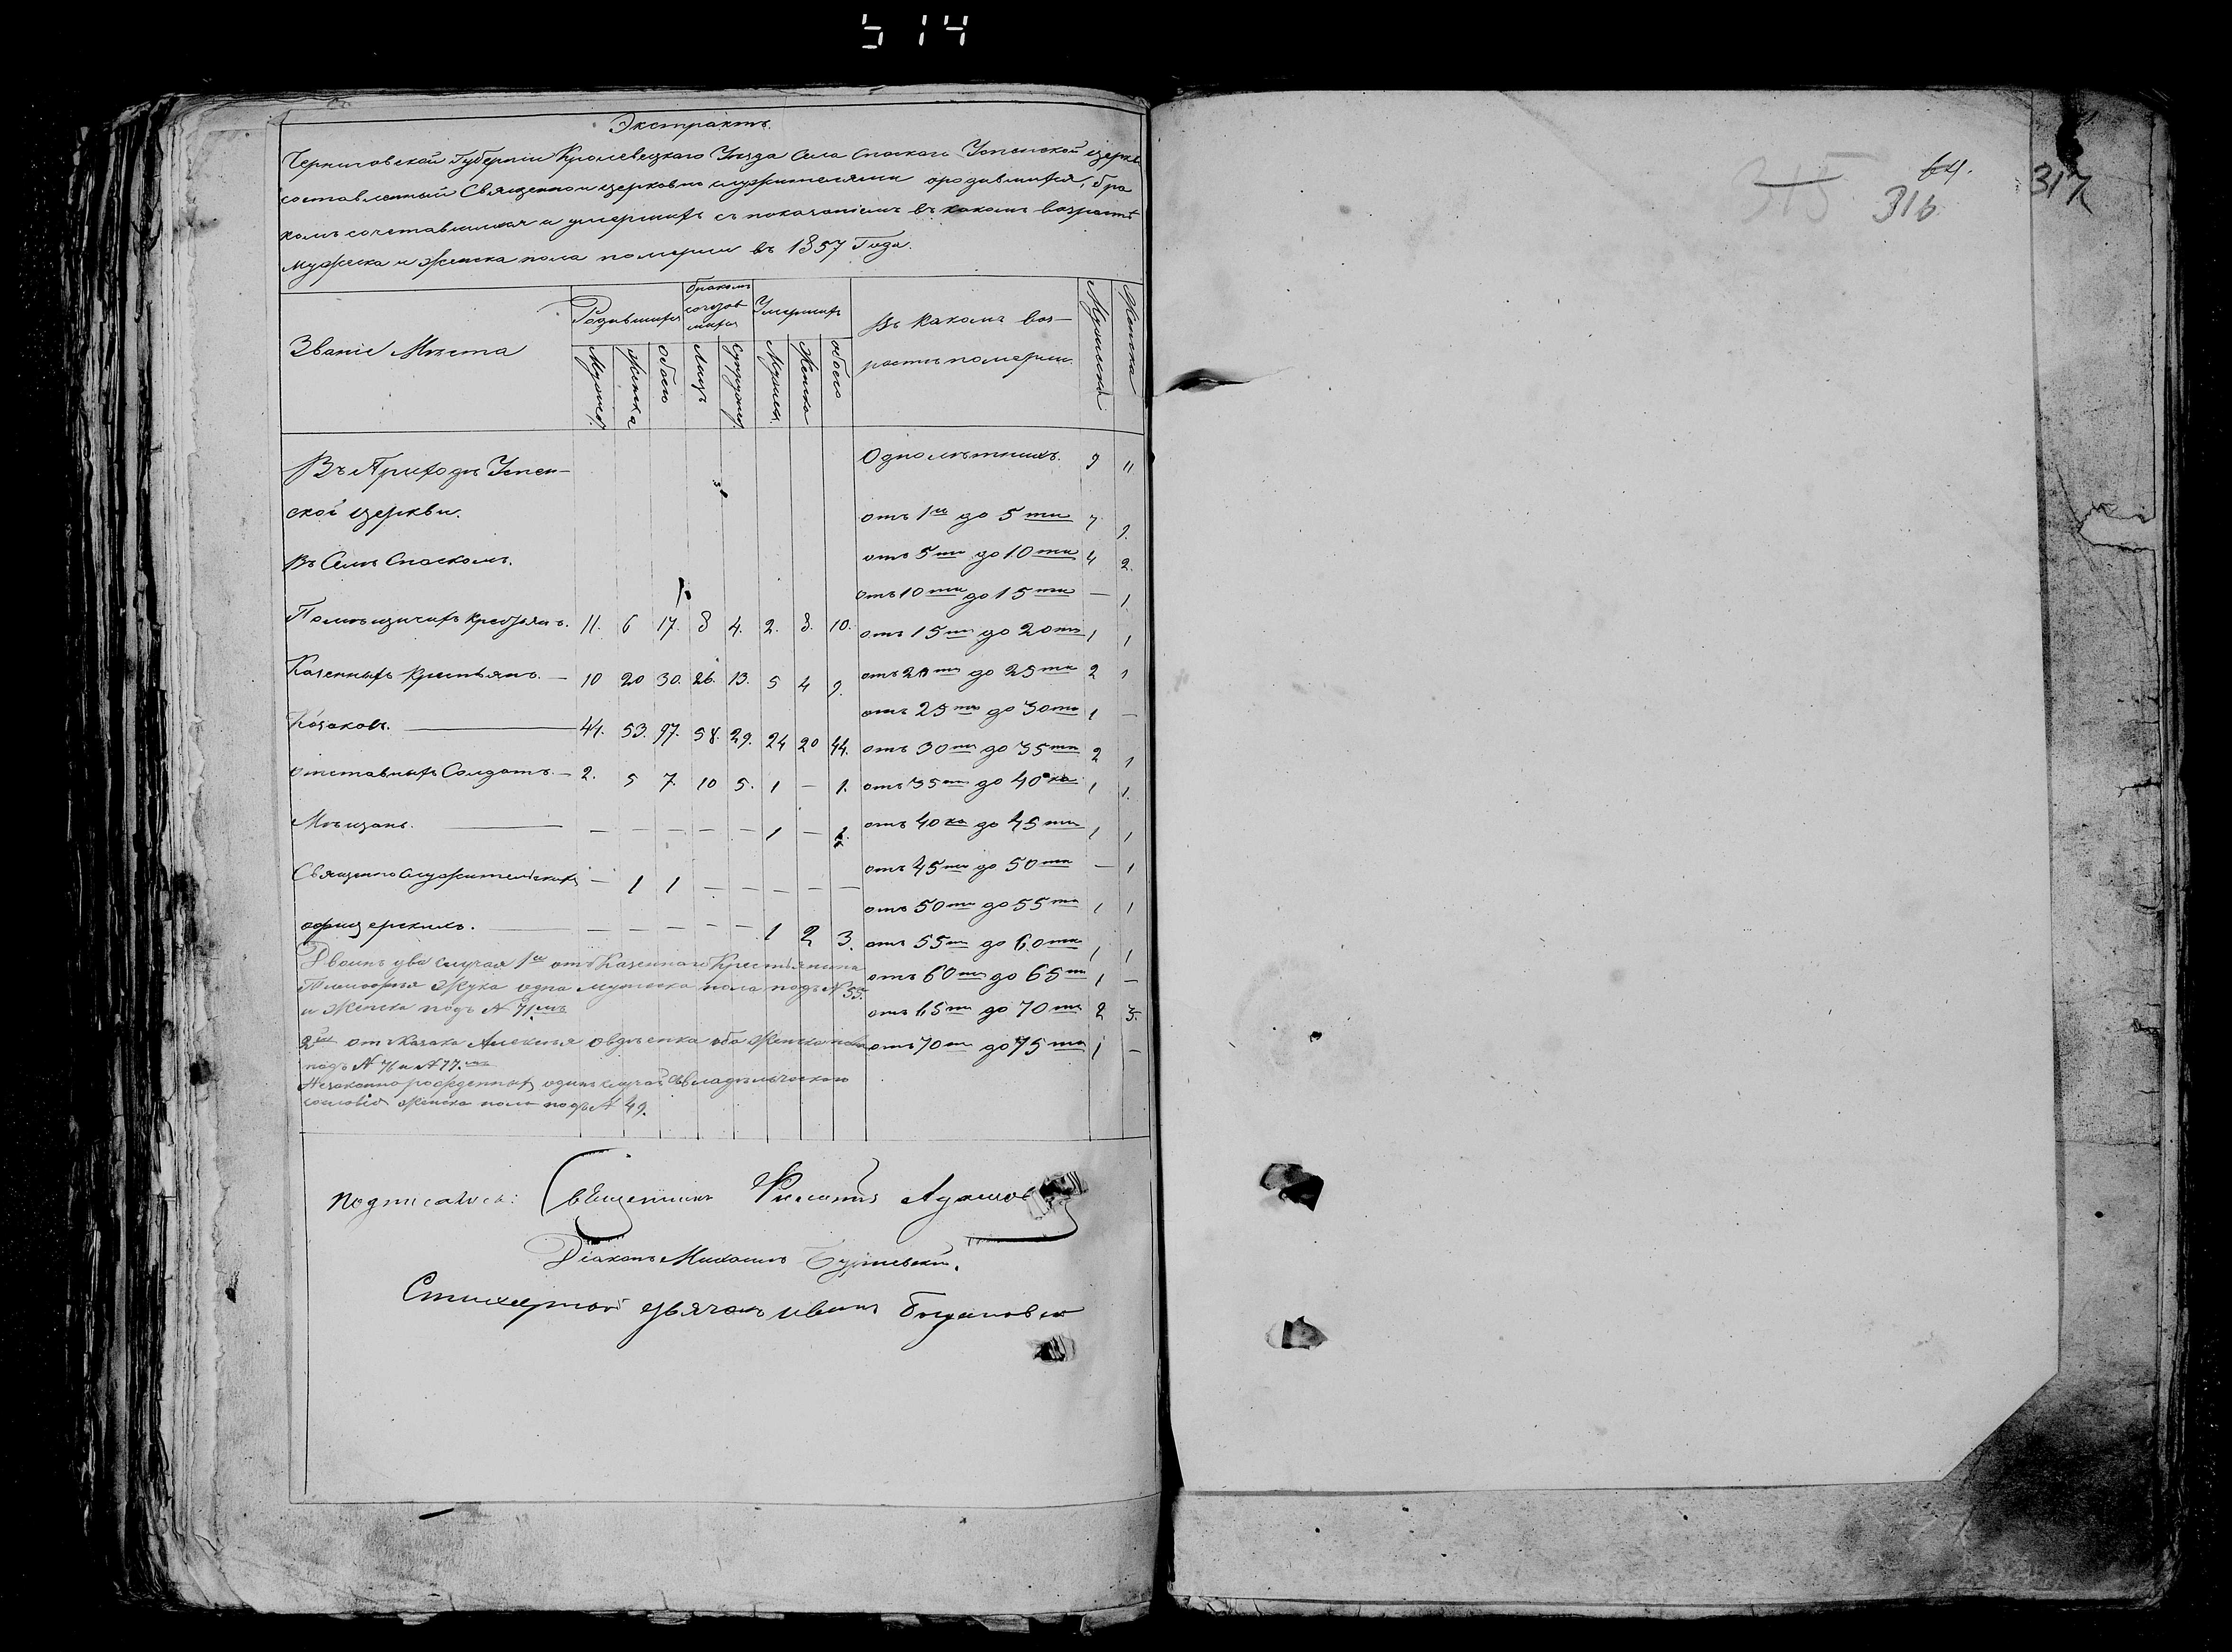 514
Экстрактъ.
Черниговской Губерніи Кролевецкаго Уѣзда Села Спаского Успенской церкви
составленный Священно и церковно служителями о родившихся, бра
комъ сочетавшихся и умершихъ съ показаніемъ въ какомъ возрастѣ
мужеска и женска пола померли въ 1857 Года.
Званіе Мѣста
Родившихся
бракомъ
Умершихъ
Въ какомъ воз-
растѣ померли.
Мужеска
Женска
Мужес.
Женска
обоего
Лицъ
Супружес.
Мужеск.
Женска
обоего
Въ Приходѣ Успен-
ской церкви.
Въ Селѣ Спаскомъ.
Помѣщичихъ крестьянъ. 11. 6 17. 8 4. 2. 8. 10.
Казенныхъ крестьянъ. — 10 20 30. 26. 13. 5 4 9.
Козаковъ. — 44. 53. 97. 58. 29. 24 20 44.
отставныхъ Солдатъ. — 2. 5 7. 10 5. 1 — 1.
Мѣщанъ. — — — — — — 1 — 1.
Священнослужительскихъ — 1 1 — — — — —
офицерскихъ. — — — — — — 1 2 3.
Однолѣтнихъ. 9 "
отъ 1го до 5ти 7 9.
отъ 5ти до 10ти 4 2.
отъ 10ти до 15ти — 1
отъ 15ти до 20ти 1 1
отъ 20ти до 25ти 2 1
отъ 25ти до 30ти 1 —
отъ 30ти до 35ти 2 1
отъ 35ти до 40ка 1 1.
отъ 40ка до 45ти 1 1
отъ 45ти до 50ти — 1
отъ 50ти до 55ти 1 1
отъ 55ти до 60ти 1 1
отъ 60ти до 65ти 1 —
отъ 65ти до 70ти 2 3.
отъ 70ти до 75ти 1 —
Двоинъ два случая 1й отъ Казеннаго Крестьянина
Тимофея Жука одна мужеска пола подъ № 55.
и Женска подъ № 71мъ
2й от Казака Алексея оба Женска пола
подъ № 76 и № 77.
Незаконно рожденныхъ одинъ случай владѣльческого
сословія женска пола подъ № 49.
подписались: Священникъ Адамов
Діаконъ Михаилъ
Стихарной дьячокъ Иванъ
315
64.
316
317